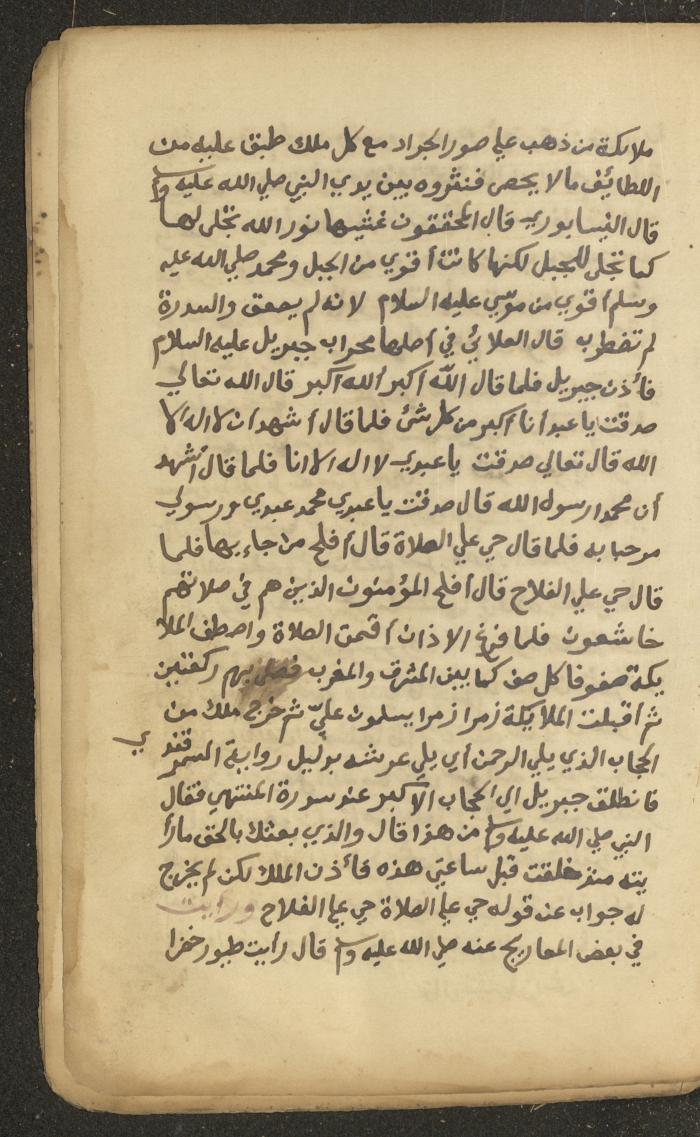 ملائكة من ذهب علي صور الجراد مع كل ملك طبق عليه من
اللطائف ما لا يحصي فنثروه بين يدي النبي صلي الله عليه وسلم
قال النيسابوري قال المحققون غشيها نور الله تجلى لها
كما تجلى للجبل لكنها كانت أقوي من الجبل ومحمد صلي الله عليه
وسلم أقوي من موسي عليه السلام لانه لم يصعق والسدرة
لم تضطرب قال العلائي في أصلها محراب جبريل عليه السلام
فأذن جبريل فلما قال الله أكبر الله أكبر قال الله تعالي
صدقت يا عبد أنا أكبر من كل شئ فلما قال أشهد ان لا اله الا
الله قال تعالي صدقت يا عبدي لا اله الا انا فلما قال أشهد
أن محمدا رسول الله قال صدقت يا عبدي محمد عبدي ورسولي
مرحبا به فلما قال حي علي الصلاة قال أفلح من جاء بها فلما
قال حي علي الفلاح قال أفلح المؤمنون الذين هم في صلاتهم
خاشعون فلما فرغ الاذان أقمت الصلاة واصطف الملا
يكة صفوفا كل صف كما بين المشرق والمغرب فصلى بهم ركعتين
ثم أقبلت الملايكة زمرا زمرا يسلمون علي ثم خرج ملك من
الحجاب الذي يلي الرحمن أي يلي عرشه بدليل رواية السمرقندي
فانطلق جبريل الي الحجاب الأكبر عند سدرة المنتهي فقال
النبي صلي الله عليه وسلم من هذا قال والذي بعثك بالحق ما رأ
يته منذ خلقت قبل ساعتي هذه فأذن الملك لكن لم يخرج
له جواب عن قوله حي علي الصلاة حي علي الفلاح ورأيت
في بعض المعاريج عنه صلي الله عليه وسلم قال رأيت طيور خضرا